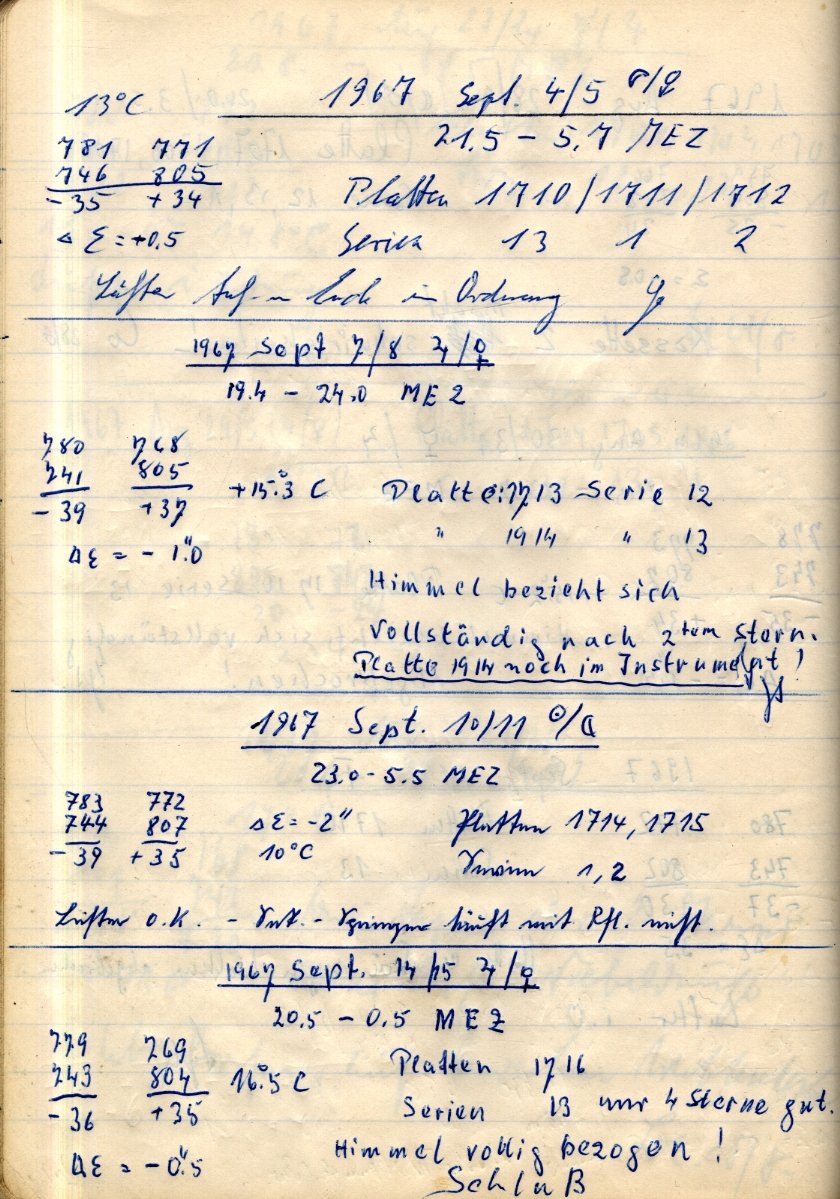 13°C 1967 Sept. 4/5 ♂/☿
781 771 21.5 – 5.7 MEZ
746 805
-35 +34 Platten 1710/1711/1712
Δ Ɛ = +0.5 Serien 13 1 2
Lüfter Auf- u in Ordnung
1967 Sept 7/8 ♃/♀
19.4 – 24.0 MEZ
780 768
741 805 +15.°3 C Platte: 1713 Serie 12
-39 +37 " 1914 " 13
ΔƐ = - 1."0
Himmel bezieht sich
vollständig nach 2tem Stern.
Platte 1914 noch im Instrument!
1967 Sept. 10/11 ☉/☾
23.0 - 5.5 MEZ
783 772
744 807 ΔƐ = -2" Platten 1714, 1715
-39 +35 10°C Serien 1, 2
Lüfter o.K. - läuft mit nicht.
1967 Sept. 14/15 ♃/♀
20.5 – 0.5 MEZ
779 769
743 804 16.°5 C Platten 1716
-36 +35 Serien 13 nur 4 Sterne gut.
ΔƐ = -0."5 Himmel vollig bezogen!
Schluß